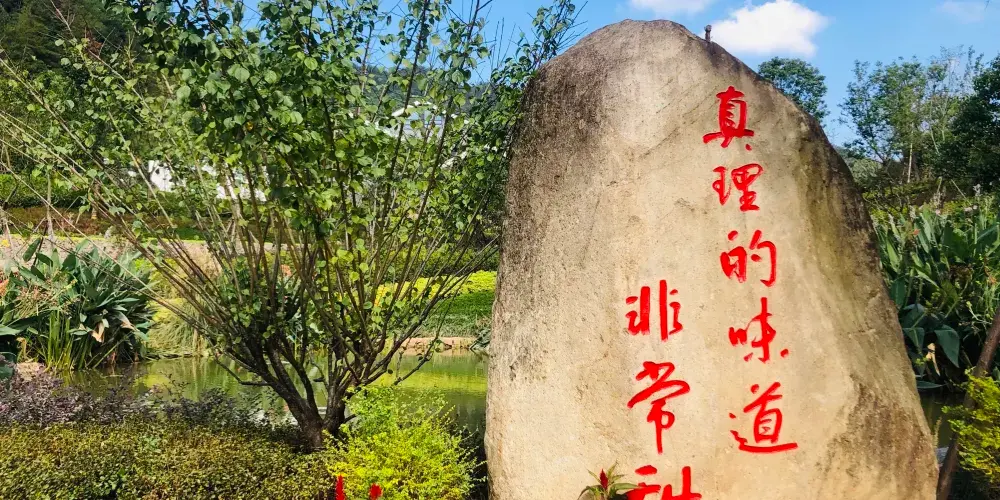 真理的味道
非常甜